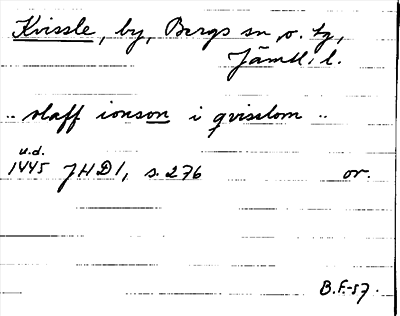 Kvissle, by, Bergs sn, o. tg,
Jämtl. l.
.. olaff ionson i qvisslom ..
u.d.
1445 JHD1, s. 276 or.
B.F.-57.